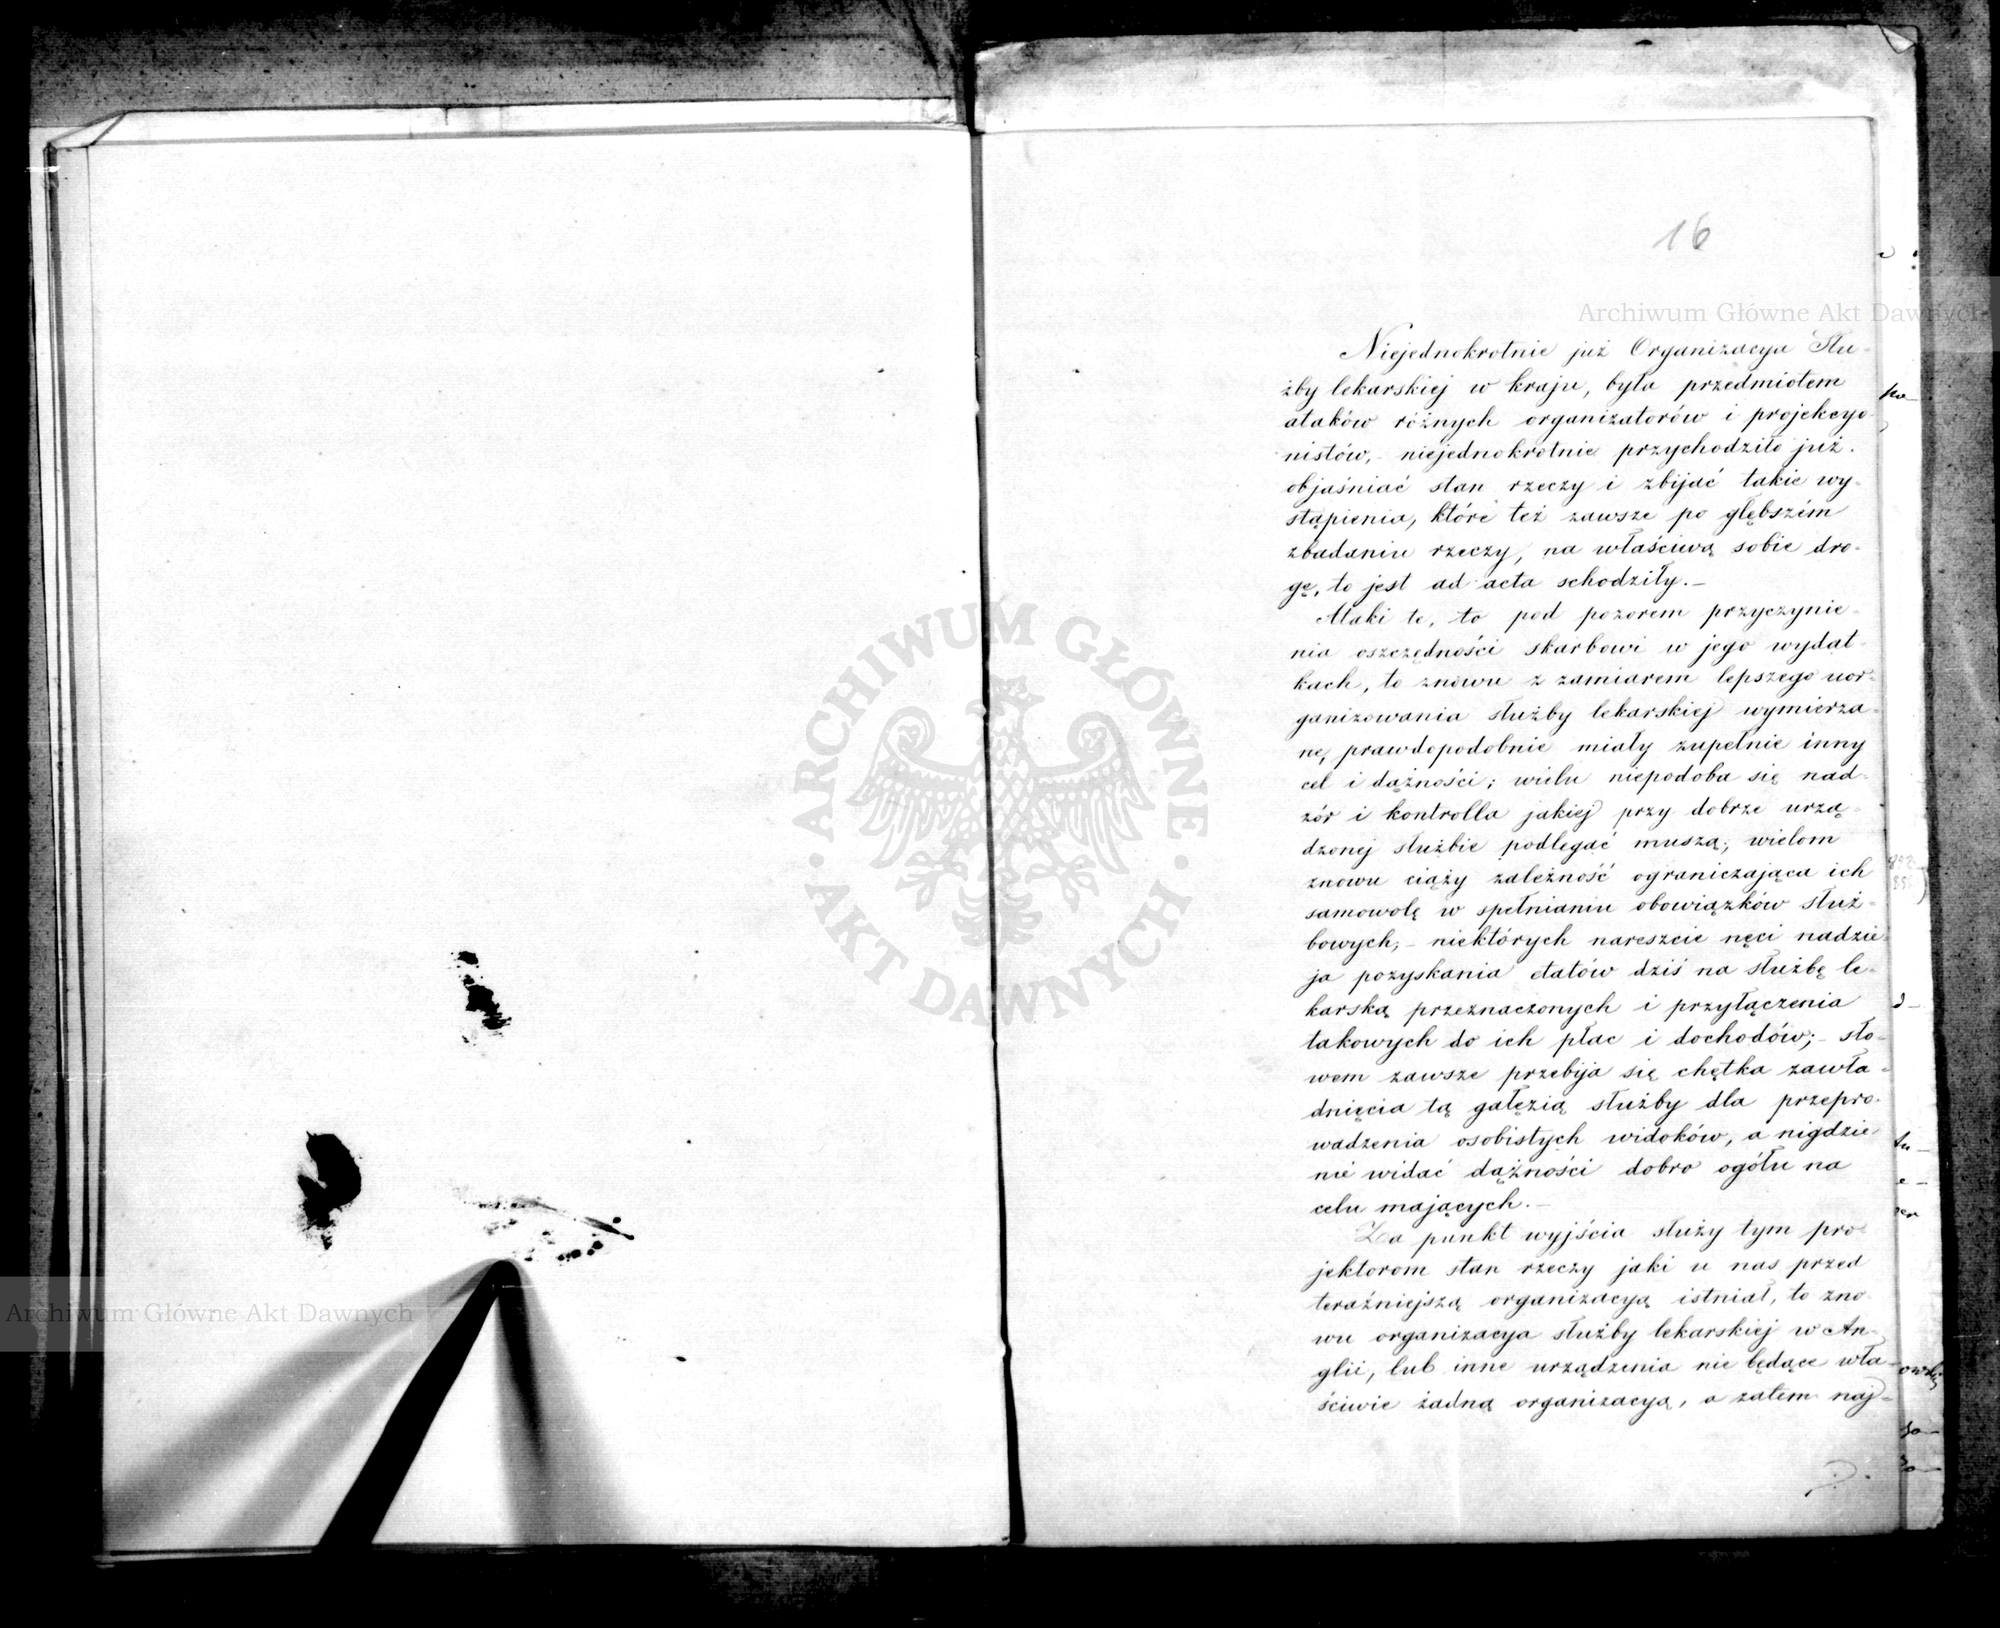 16
Archiwum Główne Akt Dawnych
Niejednokrotnie już Organizacya Słu-
żby lekarskiej w kraju, była przedmiotem
ataków różnych organizatorów i projekcyo-
nistów, - niejednokrotnie przychodziło już
objaśniać stan rzeczy i zbijać takie wy-
stąpienia, które też zawsze po głębszém
zbadaniu rzeczy, na właściwą sobie dro-
gę, to jest ad acta schodziły. -
Ataki te, to pod pozorem przyczynie-
nia oszczędności skarbowi w jego wydat-
kach, to znowu z zamiarem lepszego uor-
ganizowania służby lekarskiej wymierza-
ne, prawdopodobnie miały zupełnie inny
cel i dążności; wielu niepodoba się nad-
zór i kontrolla jakiej przy dobrze urzą-
dzonej służbie podlegać muszą; wielom
znowu ciąży zależność ograniczająca ich
samowolę w spełnianiu obowiązków służ-
bowych; - niektórych nareszcie nęci nadzie-
ja pozyskania etatów dziś na służbę le-
karską przeznaczonych i przyłączenia
takowych do ich płac i dochodów; - sło-
wem zawsze przebija się chętka zawła-
dnięcia tą gałęzią służby dla przepro-
wadzenia osobistych widoków, a nigdzie
nie widać dążności dobro ogółu na
celu mających. -
Za punkt wyjścia służy tym pro-
jektorom stan rzeczy jaki u nas przed
teraźniejszą organizacyą istniał, to zno-
wu organizacya służby lekarskiej w An-
glii, lub inne urządzenia nie będące wła-
ściwie żadną organizacyą, a zatem naj-
ARCHIWUM GŁÓWNE
· AKT DAWNYCH ·
Archiwum Główne Akt Dawnych